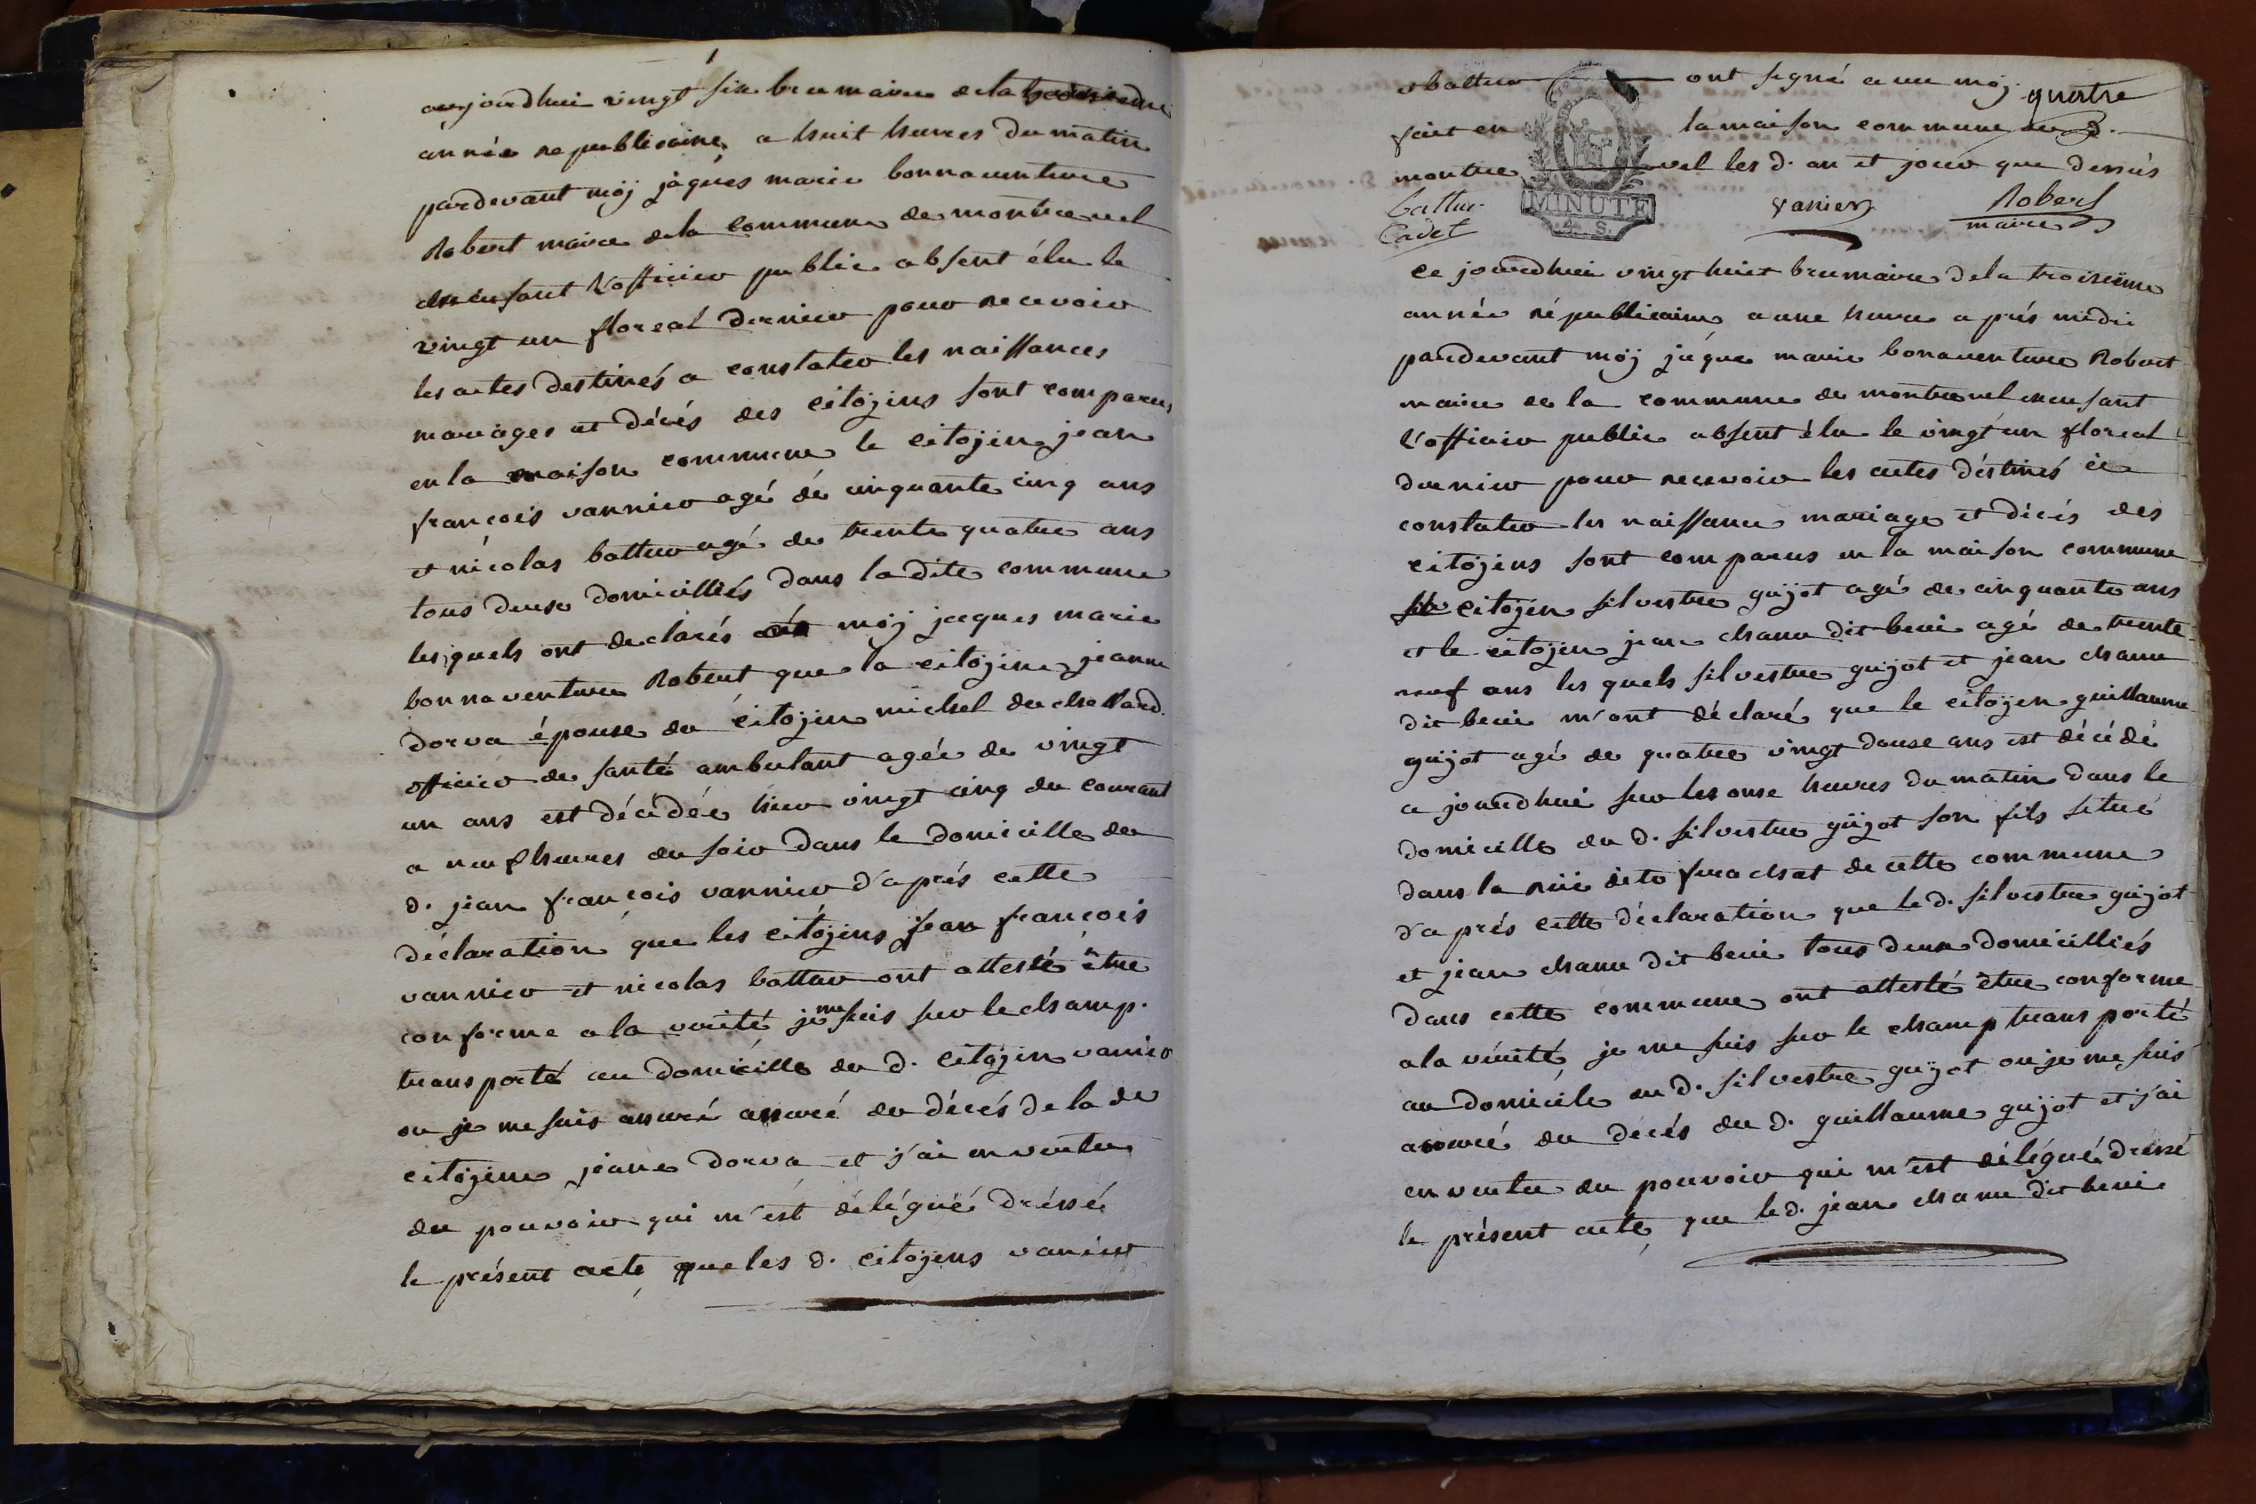 aujourdhui vingt six brumaire de la troisieme
année republicaine, a huit heures du matin
pardevant moÿ jàques marie bonnaventure
Robert maire de la commune de montrevel
en cusant l'officier public absent élu le
vingt un floreal dernier pour recevoir
les actes destinés a constater les naissances
mariages et décés des citoÿens sont comparus
en la maison commune le citoÿen jean
françois vannier agé de cinquante cinq ans
et nicolas battur agé de trente quatre ans
tous deux domicilliés dans la dite commune
lesquels ont declarés à moÿ jacques marie
bonnaventure Robert que la citoÿene jeanne
dorva épouse du citoÿen michel duchellard
officier de santé ambulant agée de vingt
un ans est décédée hier vingt cinq du courant
a neuf heures du soir dans le domicille du
d. jean françois vannier d'aprés cette
déclaration que les citoÿens jean françois
vannier et nicolas battur ont attesté être
conforme a la vérité je me suis sur le champ.
transporté au domicille du d. citoÿen vanier
ou je me suis assuré assuré du décés de la de
citoÿene jeane dorva et j'ai en vertu
du pouvoir qui m'est délégué dréssé
le présent acte, que les d. citoÿens vanier
et battur ont signé avec moÿ. quatre
fait en la maison commune du d.
montrevel les d. an et jour que dessus
battur cadet vanier Robert maire
MINUTE
4. S.
ce jourdhui vingt huit brumaire de la troisieme
année républicaine a une heure aprés midi
pardevant moÿ jàque marie bonaventure Robert
maire de la commune de montrevel encusant
l'officier public absent élu le vingt un floreal
dernier pour recevoir les actes déstinés à
constater les naissance mariage et décés des
citoÿens sont comparus en la maison commune
le citoÿen silvestre guÿot agé de cinquante ans
et le citoÿen jean chanu dit beni agé de trente
neuf ans les quels silvestre guÿot et jean chanu
dit beni m'ont déclaré que le citoÿen guillaume
guÿot agé de quatre vingt douse ans est décédé
a jourdhui sur les onse heures du matin dans le
domicille du d. silvestre guÿot son fils situé
dans la rüe dite furachat de cette commune
d'aprés cette déclaration que le d. silvestre guÿot
et jean chanu dit beni tous deux domicilliés
dans cette commune ont attesté être conforme
a la vérité, je me suis sur le champ transporté
au domicile du d. silvestre guÿot ou je me suis
assuré du décés du d. guillaume guÿot et j'ai
en vertu du pouvoir qui m'est délégué dréssé
le présent acte, que le d. jean chanu dit beni